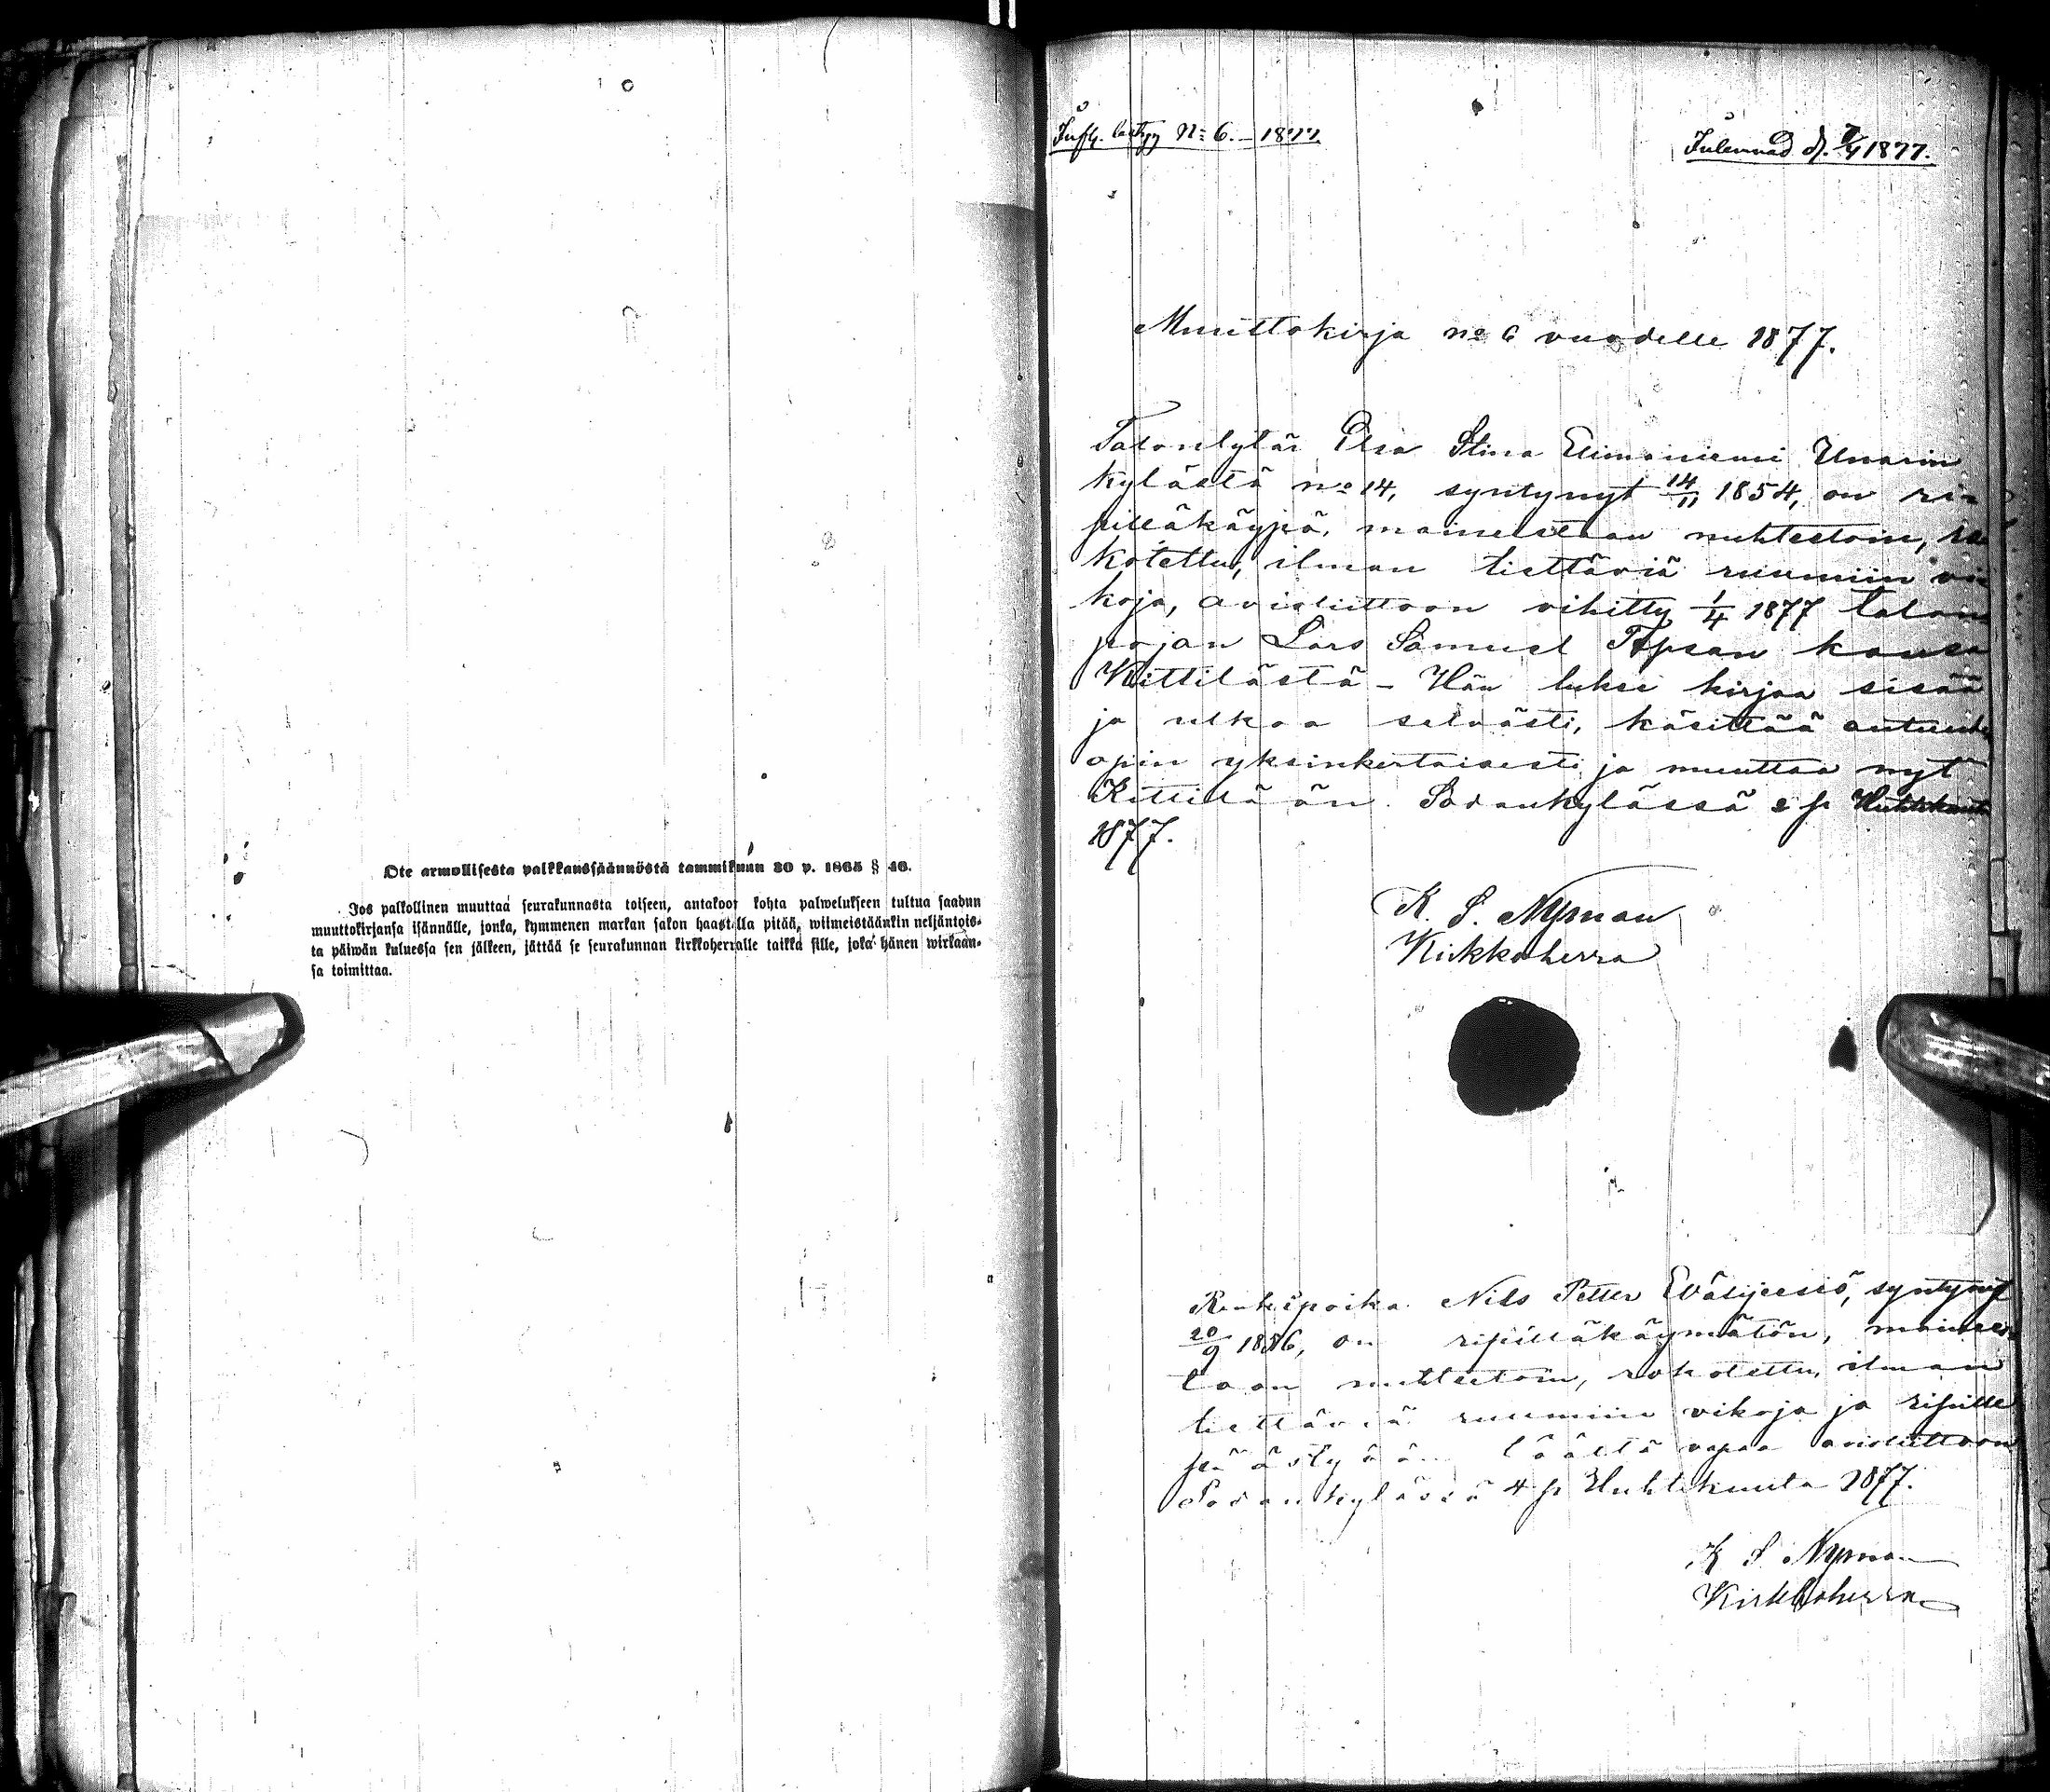 Ote armollisesta palkkaussäännöstä tammikuun 30 p. 1865 § 46.
Jos palkollinen muuttaa seurakunnasta toiseen, antakoon kohta palwelukseen tultua saadun
muuttokirjansa isännälle, jonka, kymmenen markan sakon haastolla pitää, wiimeistäänkin neljäntois-
ta päiwän kuluessa sen jälkeen, jättää se seurakunnan kirkkoherralle taikka sille, joka hänen wirkaan-
sa toimittaa.
Infl. betyg N: 6. – 1877.
Inlemnad d. 7/4 1877.
Muuttokirja no 6 vuodelle 1877.
Talontytär Elsa Stina Elimäniemi Unarin
kylästä no 14, syntynyt 14/11 1854, on ri
pilläkäypä, maineeltaan nuhteetoin, ro
kotettu, ilman tiettäviä ruumiin vi
koja, avioliittoon vihitty 1/4 1877 talon
pojan Lars Samuel Tepsan kansa
Kittilästä – Hän lukee kirjaa sisää
ja ulkoa selvästi, käsittää autuuden
opin yksinkertaisesti ja muuttaa nyt
Kittilään. Sodankylässä 2 p Huhtikuuta
1877.
K. S. Nyman
Kirkkoherra
Renkipoika Nils Petter Välijeesiö, syntynyt
20/9 1856, on ripilläkäymätön, maineel
taan nuhteetoin, rokotettu, ilman
tiettäviä ruumiin vikoja ja ripille
päästyään täältä vapaa avioliittoon
Sodankylässä 4 p Huhtikuuta 1877.
K S Nyman
Kirkkoherra